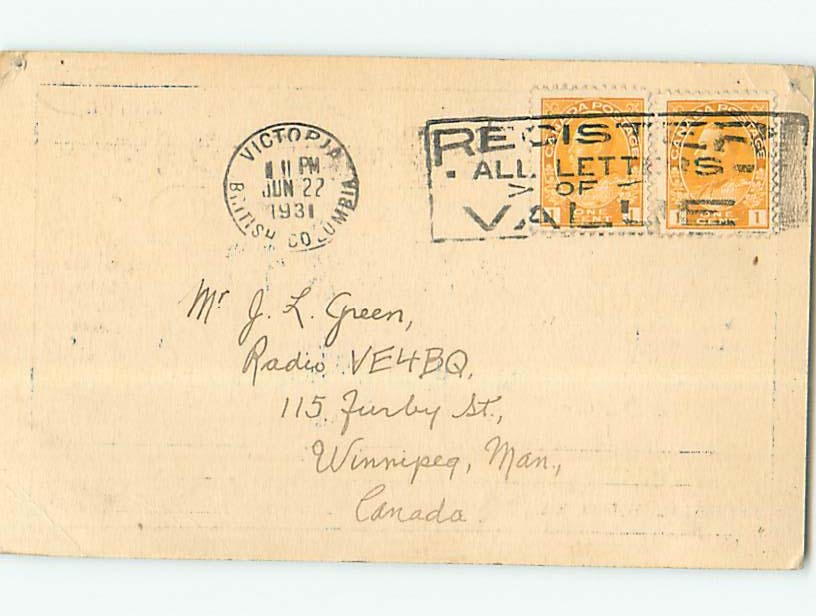 VICTORIA
11 PM
JUN 22
1931
BRITISH COLUMBIA
REGISTER
ALL LETTERS
OF
VALUE
CANADA POSTAGE
1 ONE CENT 1
CANADA POSTAGE
1 ONE CENT 1
Mr J. L. Green,
Radio VE4BQ,
115 Furby St.,
Winnipeg, Man.,
Canada